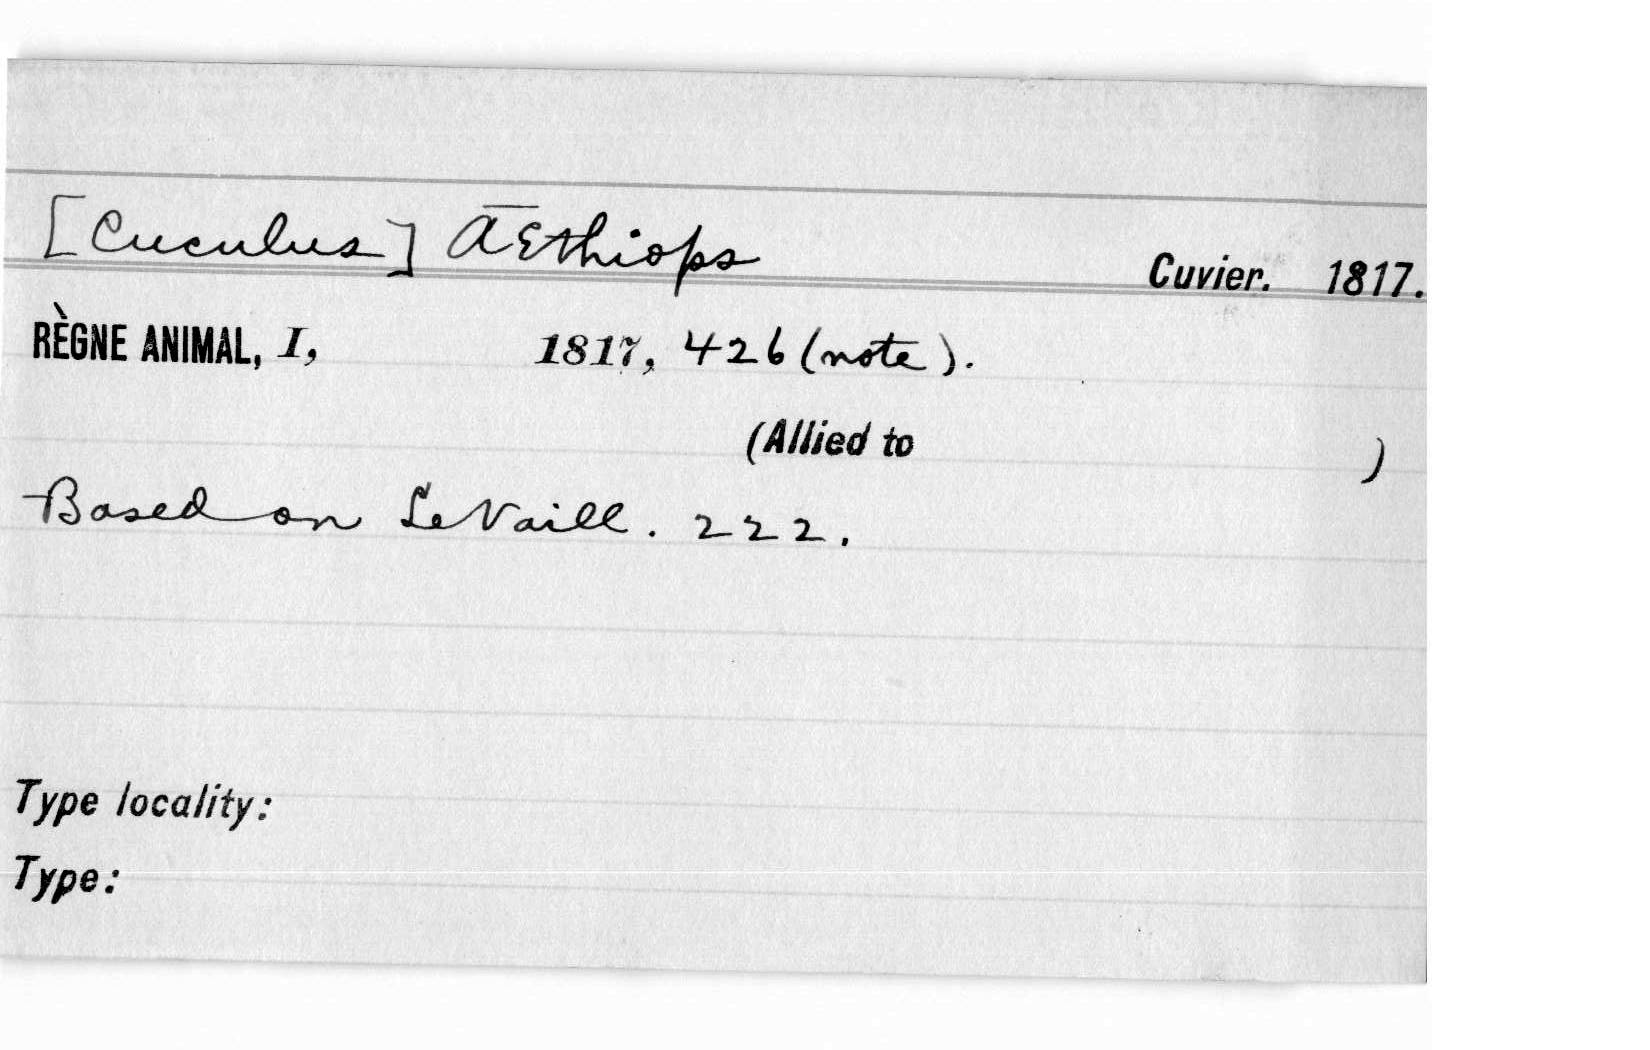 [Cuculus] Æthiops
Cuvier. 1817.
RÈGNE ANIMAL, I, 1817, 426 (note).
(Allied to )
Based on LeVaill. 222.
Type locality:
Type: